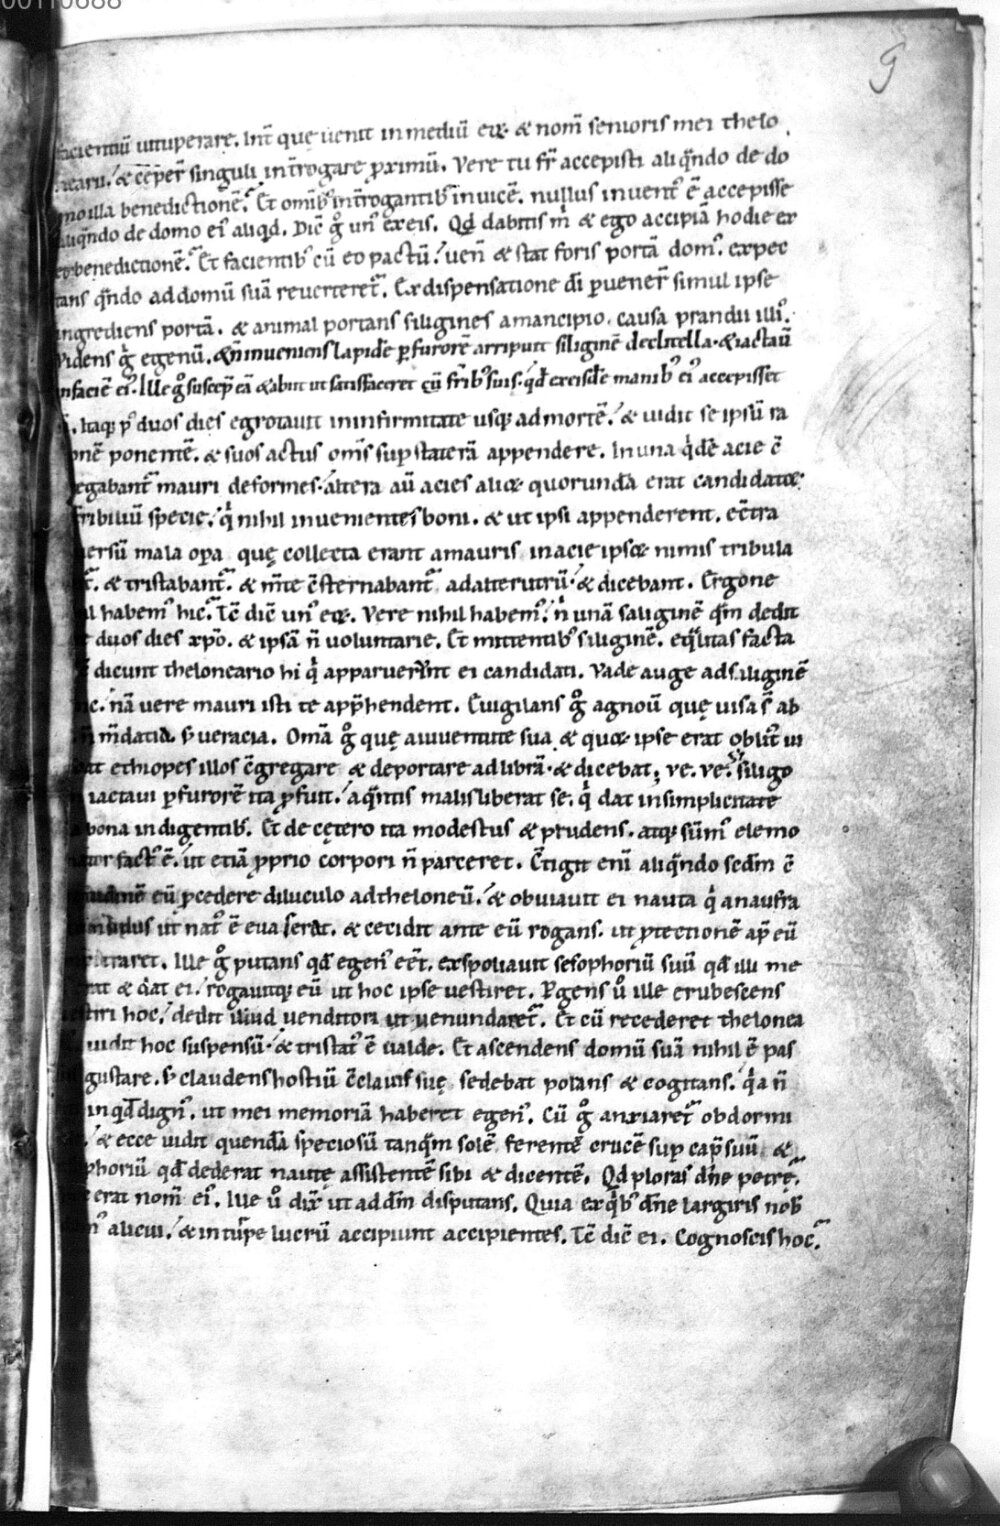 00110688
9
uituperare. Int̄ quę uenit in mediū eiꝰ & nom̄ senioris mei thelo
& cēper̄ singuli int̄rogare ꝓximū. Vere tu fr̄ accepisti aliqn̄do de do
mo illa benedictionē. Et omibꝰ int̄rogantibꝰ inuicē. nullus inuentꝰ ē accepisse
aliqn̄do de domo eiꝰ aliqd. Dic̄ gͦ unꝰ ex eis. Qd dabitis m̄ & ego accipiā hodie ex
benedictionē. Et facientibꝰ cū eo pactū. uen̄ & stat foris portā domꝰ. expec
tans qn̄do ad domū suā reuerteret̄. Ex dispensatione di ꝑuener̄ simul ipse
ingrediens portā. & animal portans siligines a mancipio. causa prandii illiꝰ.
Videns gͦ egenū. & n̄ inueniens lapidē ꝑ furorē arripuit siliginē de clitella. & iactauit
in faciē eiꝰ. Ille gͦ suscep̄ eā & abiit ut satisfaceret cū fribꝰ suis. qd ex eisdē manibꝰ eiꝰ accepisset
Itaqꝫ pꝰ duos dies egrotauit in infirmitate usqꝫ ad mortē. & uidit se ipsū ra
onē ponentē. & suos actus om̄s suꝑ staterā appendere. In una qͥdē acie ē
egabant̄ mauri deformes. altera aū acies alioꝝ quorundā erat candidatoꝝ
ribiliū specie. qͥ nihil inuenientes boni. & ut ipsi appenderent. ec̄tra
uersū mala oꝑa quę collecta erant a mauris in acie ipsoꝝ nimis tribula
& tristabant̄. & m̄te c̄sternabant̄ ad alterutrū. & dicebant. Ergone
habemꝰ hic. Tc̄ dic̄ unꝰ eoꝝ. Vere nihil habemꝰ. n̄ unā saliginē qm̄ dedit
duos dies xpō. & ipsā n̄ uoluntarie. Et mittentibꝰ siliginē. eqͣlitas facta
dicunt theloneario hi qͥ apparuerunt ei candidati. Vade auge ad siliginē
nā uere mauri isti te app̄hendent. Euigilans gͦ agnouit quę uisa st̄ ab
n̄ m̄datia sꝫ ueracia. Omā gͦ quę a iuuentute sua & quoꝝ ipse erat oblitꝰ ui
ethiopes illos c̄gregare & deportare ad librā. & dicebat, ve. ve. si siligo
iactaui ꝑ furorē ita ꝓfuit. a qn̄tis malis liberat se. qͥ dat in simplicitate
bona indigentibꝰ. Et de cętero ita modestus & prudens. atqꝫ sūmꝰ elemo
factꝰ ē. ut etiā ꝓprio corpori n̄ parceret. C̄tigit enī aliqn̄do sedm̄ ē
eū ꝓcedere diluculo ad theloneū. & obuiauit ei nauta qͥ a naufra
ut natꝰ ē euaserat. & cecidit ante eū rogans. ut ꝓtectionē ap̄ eū
Ille gͦ putans qd egenꝰ eēt. exspoliauit se sophoriū suū qd illi me
& dat ei. rogauitqꝫ eū ut hoc ipse uestiret. Pgens ūo ille erubescens
hoc. dedit illud uenditori ut uenundaret̄. Et cū recederet thelonea
uidit hoc suspensū. & tristatꝰ ē ualde. Et ascendens domū suā nihil ē pas
gustare. sꝫ claudens hostiū c̄clauis suę sedebat plorans & cogitans. qͥa n̄
in qd dignꝰ. ut mei memoriā haberet egenꝰ. Cū gͦ anxiaret̄ obdormi
& ecce uidit quendā speciosū tanqͣm solē ferentē crucē suꝑ caput suū &
phoriū qd dederat nautę assistentē sibi & dicentē. Qd ploras dn̄e petre
erat nom̄ eiꝰ. Ille ūo dix̄ ut ad dm̄ disputans. Quia ex qͥbꝰ dn̄e largiris nob
alicui. & in tur̄pe lucrū accipiunt accipientes. Tc̄ dic̄ ei. Cognoscis hoc.